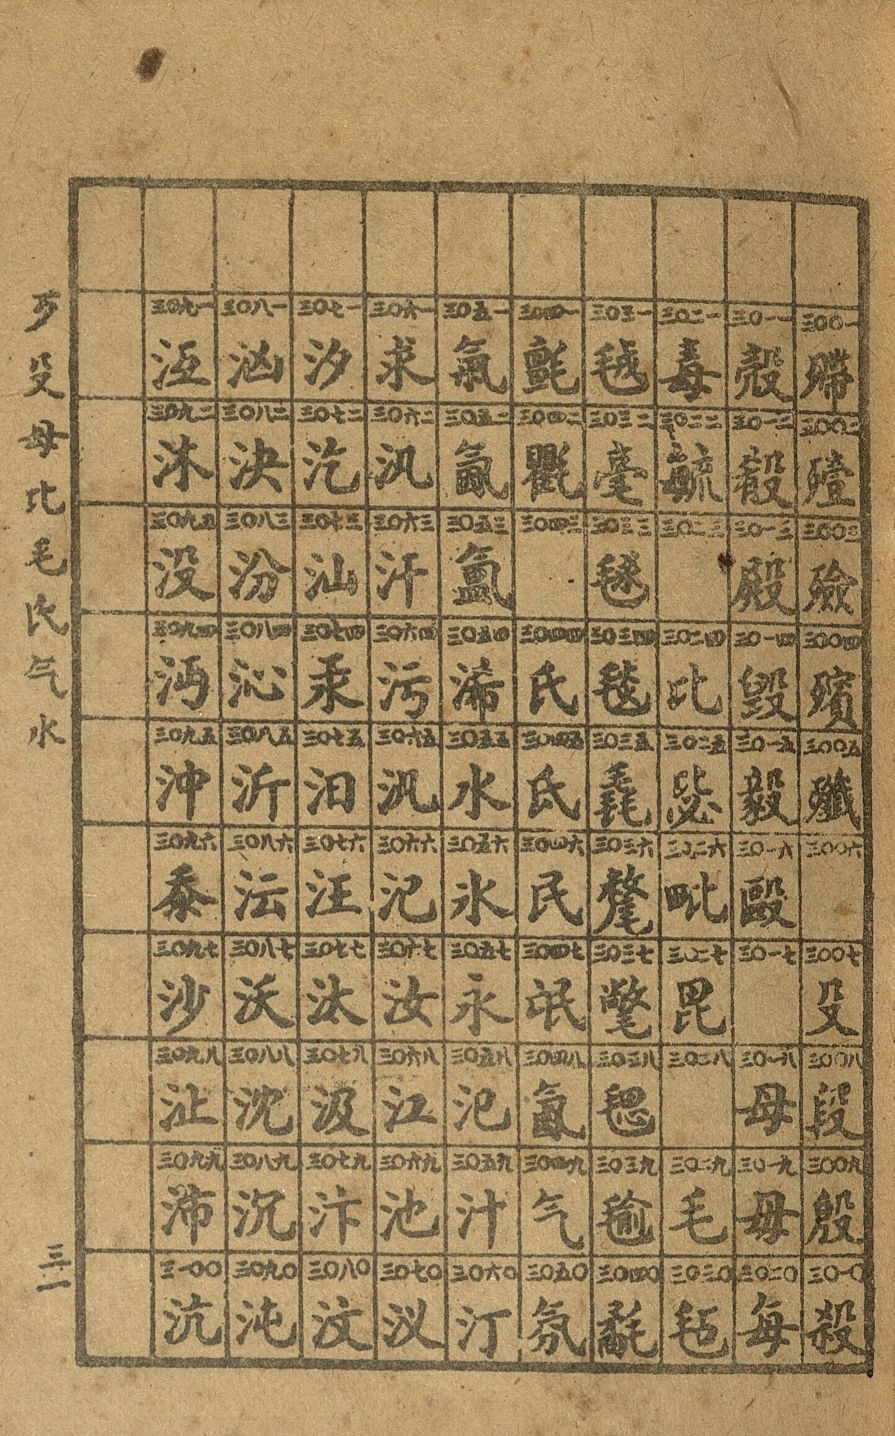 歹殳毋比毛氏气水
三〇〇一 殢 三〇〇二 殪 三〇〇三 殮 三〇〇四 殯 三〇〇五 殲 三〇〇六 三〇〇七 殳 三〇〇八 段 三〇〇九 殷 三〇一〇 殺
三〇一一 殼 三〇一二 殽 三〇一三 殿 三〇一四 毀 三〇一五 毅 三〇一六 毆 三〇一七 三〇一八 毋 三〇一九 母 三〇二〇 每
三〇二一 毒 三〇二二 毓 三〇二三 三〇二四 比 三〇二五 毖 三〇二六 毗 三〇二七 毘 三〇二八 三〇二九 毛 三〇三〇 毡
三〇三一 毧 三〇三二 毫 三〇三三 毬 三〇三四 毯 三〇三五 毳 三〇三六 氂 三〇三七 氅 三〇三八 毸 三〇三九 毹 三〇四〇 氄
三〇四一 氈 三〇四二 氍 三〇四三 三〇四四 氏 三〇四五 氐 三〇四六 民 三〇四七 氓 三〇四八 三〇四九 气 三〇五〇 氛
三〇五一 氣 三〇五二 氤 三〇五三 氳 三〇五四 三〇五五 水 三〇五六 氷 三〇五七 永 三〇五八 氾 三〇五九 汁 三〇六〇 汀
三〇六一 求 三〇六二 汎 三〇六三 汗 三〇六四 污 三〇六五 汛 三〇六六 汜 三〇六七 汝 三〇六八 江 三〇六九 池 三〇七〇 汊
三〇七一 汐 三〇七二 汔 三〇七三 汕 三〇七四 汞 三〇七五 汨 三〇七六 汪 三〇七七 汰 三〇七八 汲 三〇七九 汴 三〇八〇 汶
三〇八一 汹 三〇八二 決 三〇八三 汾 三〇八四 沁 三〇八五 沂 三〇八六 沄 三〇八七 沃 三〇八八 沈 三〇八九 沉 三〇九〇 沌
三〇九一 沍 三〇九二 沐 三〇九三 沒 三〇九四 沔 三〇九五 沖 三〇九六 沗 三〇九七 沙 三〇九八 沚 三〇九九 沛 三一〇〇 沆
三一